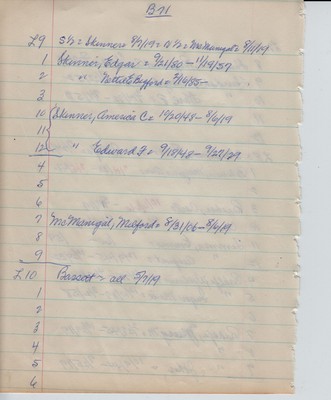 B71
L9 S½ = Skinners 8/7/19 = N½ = McManigal = 8/11/19
1 Skinner, Edgar = 9/21/80 - 1/19/57
2 " Nettie E Byfford = 3/16/85 -
3
10 Skinner, America C = 10/20/48 - 8/6/19
11
12 " Edward F = 9/18/48 - 9/27/29
4
5
6
7 McManigal, Milford = 8/31/06 - 8/4/19
8
9
L10 Bassett - all 5/7/19
1
2
3
4
5
6